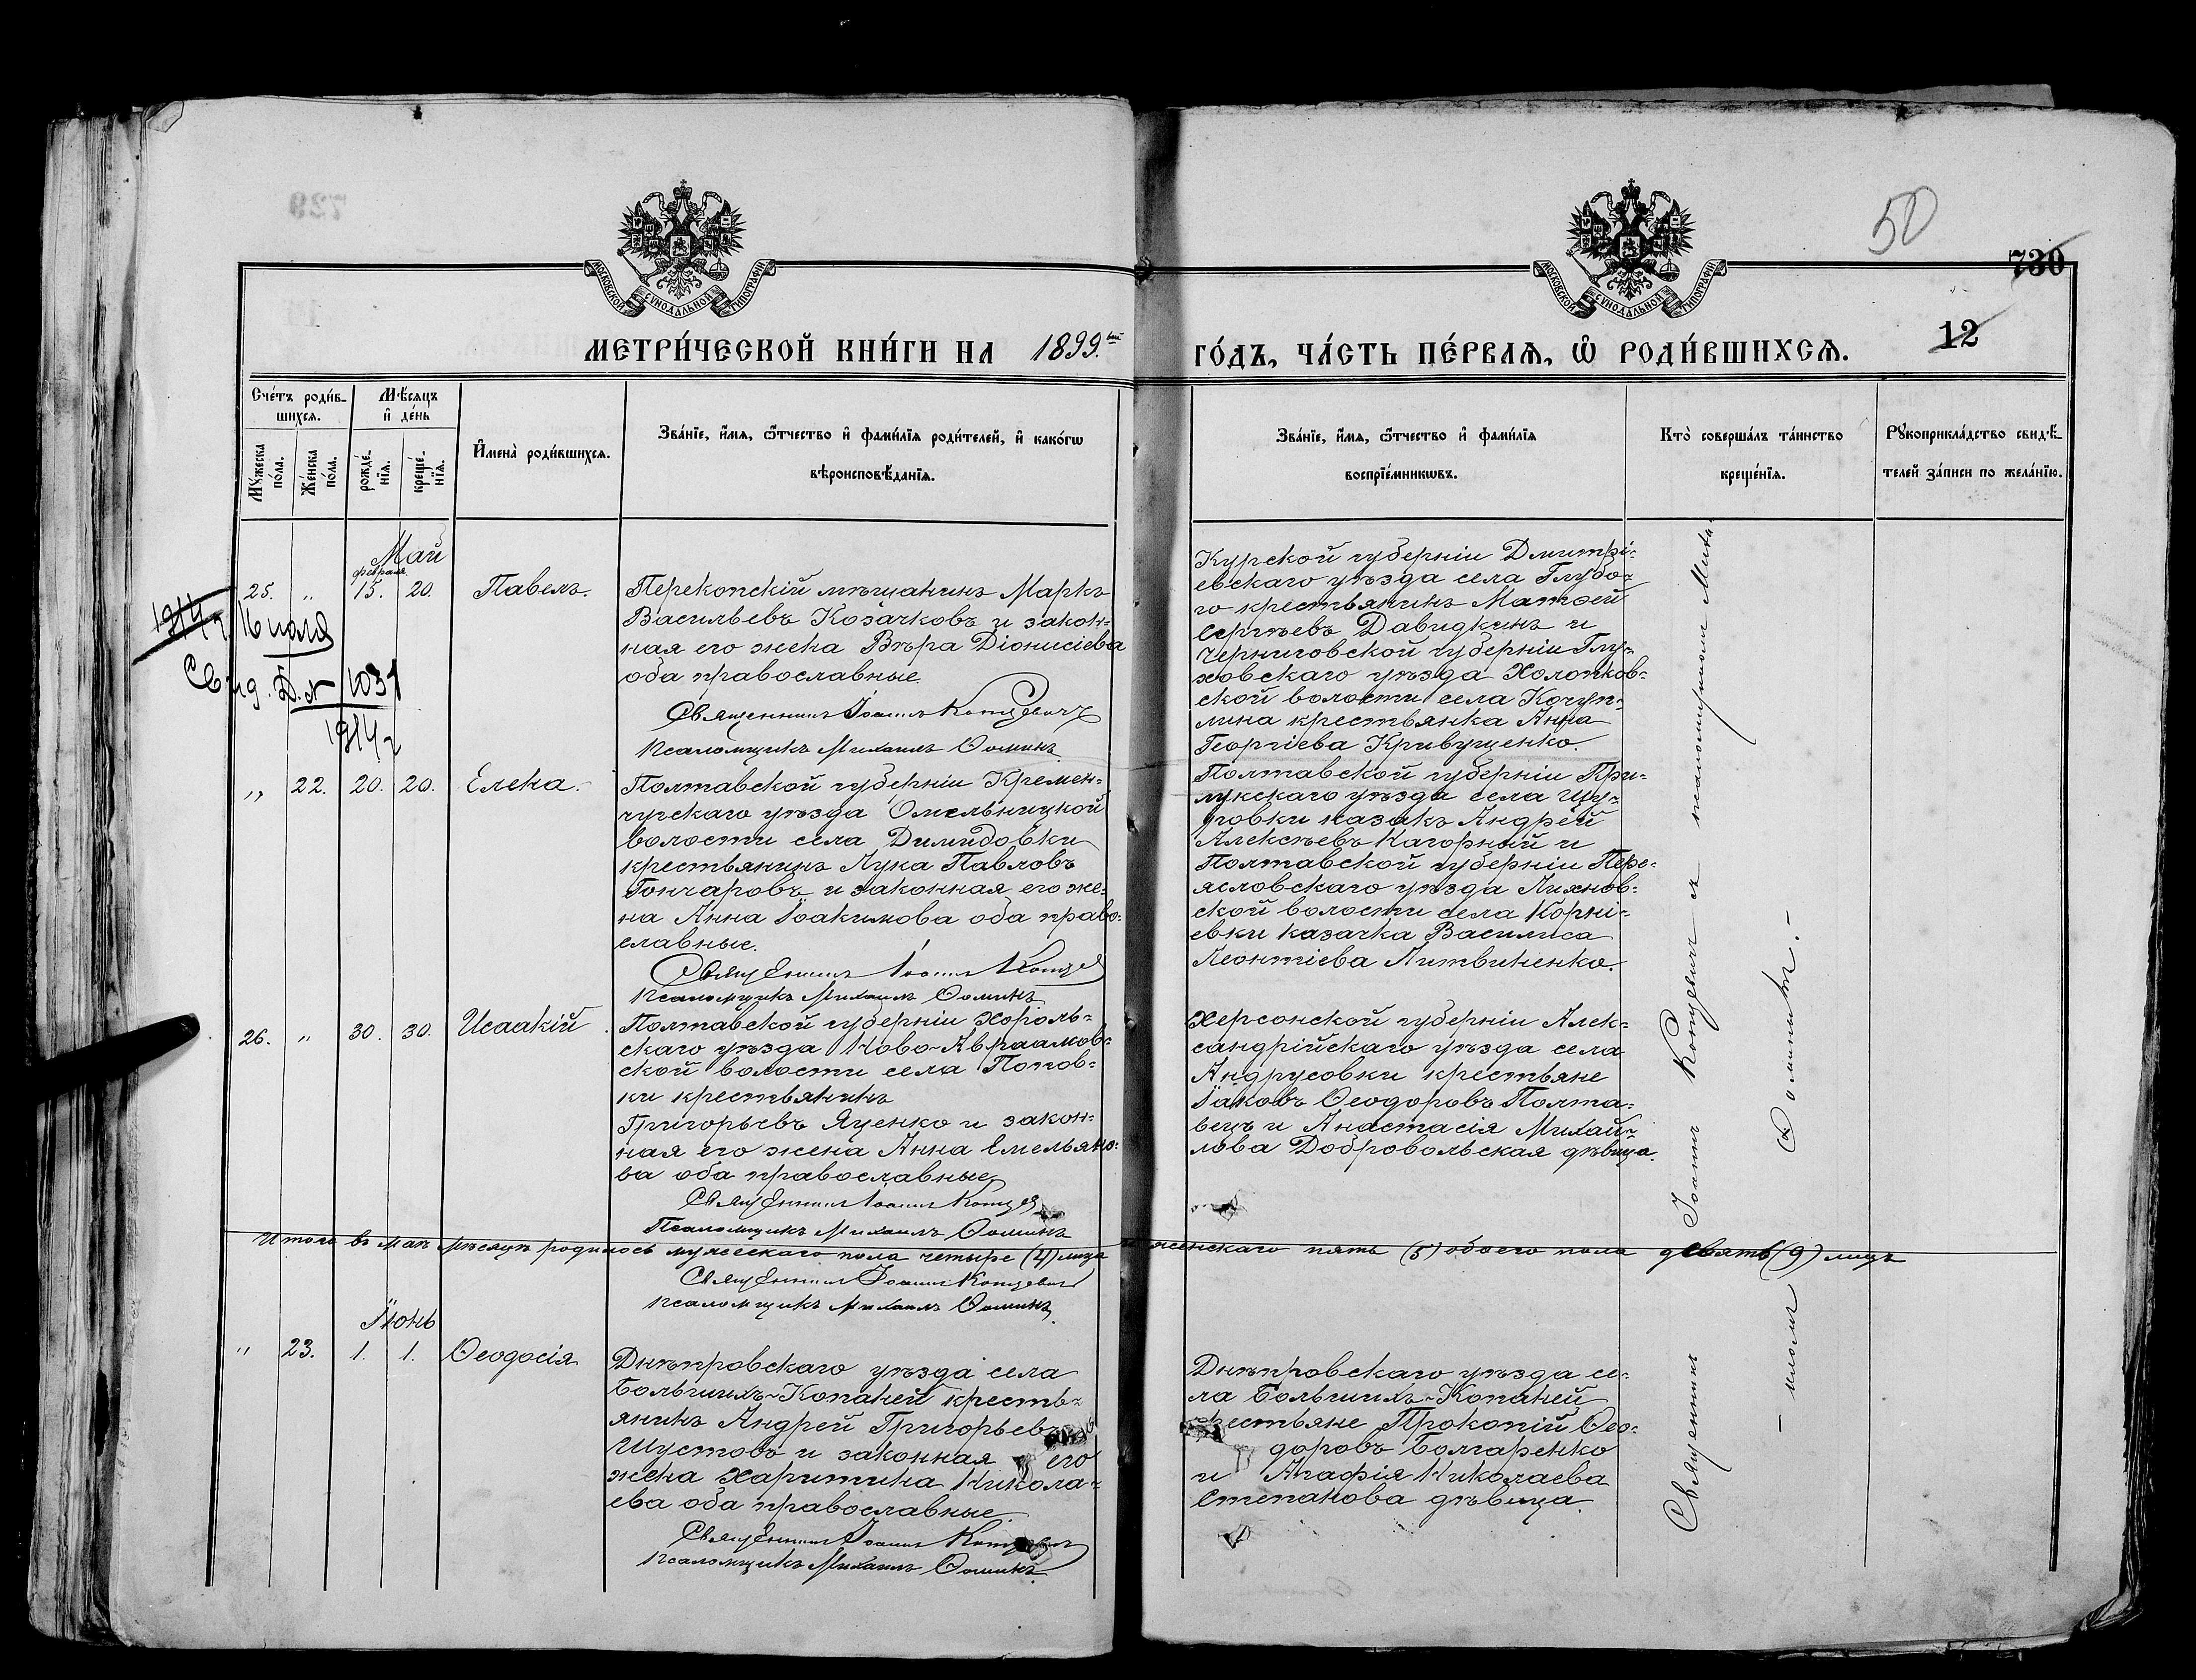 50
730
12
МОСКОВСКОЙ СѴНОДАЛЬНОЙ ТИПОГРАФІИ
МОСКОВСКОЙ СѴНОДАЛЬНОЙ ТИПОГРАФІИ
МЕТРИ́ЧЕСКОЙ КНИ́ГИ НА 1899.
ГО́ДЪ, ЧА́СТЬ ПЕ́РВАѦ, Ѽ РОДИ́ВШИХСѦ.
Сче́тъ роди́в-
шихсѧ.
Мѣ́сѧцъ
и҆ де́нь
Мꙋ́жеска
по́ла.
Же́нска
по́ла.
рожде́-
нїѧ.
креще́-
нїѧ.
И҆мена̀ роди́вшихсѧ.
Зва́нїе, и҆́мѧ, ѻ҆́тчество и҆ фами́лїѧ роди́телей, и҆ како́гѡ
вѣроисповѣ́данїѧ.
Зва́нїе, и҆́мѧ, ѻ҆́тчество и҆ фами́лїѧ
воспрїе́мникѡвъ.
Кто̀ соверша́лъ та́инство
креще́нїѧ.
Рꙋкоприкла́дство свидѣ́-
телей за́писи по жела́нїю.
Май
февраля
25. " 15. 20. Павелъ.
1914 г. 16 июля
Свид. Д. № 1031
1914 г
Перекопскій мѣщанинъ Маркъ
Васильевъ Козачковъ и закон-
ная его жена Вѣра Діонисіева
оба православные.
Священникъ Іоаннъ Концевичъ
Псаломщикъ Михаилъ Ѳоминъ
Курской губерніи Дмитрі-
евскаго уѣзда села Глубо-
го крестьянинъ Матѳей
Сергѣевъ Давидкинъ и
Черниговской губерніи Глу-
ховскаго уѣзда Холопков-
ской волости села
крестьянка Анна
Георгіева Кривущенко.
" 22. 20. 20. Елена.
Полтавской губерніи Кремен-
чугскаго уѣзда Омельницкой
волости села Димидовки
крестьянинъ Лука Павловъ
Гончаровъ и законная его же-
на Анна Іоакимова оба право-
славные.
Священникъ Іоаннъ Концев
Псаломщикъ Михаилъ Ѳоминъ
Полтавской губерніи При-
лукскаго уѣзда села
казакъ Андрей
Алексѣевъ Нагорный и
Полтавской губерніи Пере-
ясловскаго уѣзда
ской волости села Корні-
евки казачка Василиса
Леонтіева Литвиненко.
26. " 30. 30. Исаакій
Полтавской губерніи Хороль-
скаго уѣзда Ново-Авраамов-
ской волости села Попов-
ки крестьянинъ
Григорьевъ Яценко и закон-
ная его жена Анна Емельяно-
ва оба православные
Священникъ Іоаннъ Концев
Псаломщикъ Михаилъ Ѳоминъ
Херсонской губерніи Алек-
сандрійскаго уѣзда села
Андрусовки крестьяне
Іаковъ Ѳеодоровъ Полта-
вецъ и Анастасія Михай-
лова Добровольская дѣвица.
Итого въ маѣ мѣсяцѣ родилось мужескаго пола четыре (4) лица женскаго пять (5) обоего пола девять (9) лицъ
Священникъ Іоаннъ Концевичъ
Псаломщикъ Михаилъ Ѳоминъ
Іюнь
" 23. 1. 1. Ѳеодосія
Днѣпровскаго уѣзда села
Большихъ-Копаней кресть-
янинъ Андрей Григорьевъ
Шустовъ и законная его
жена Харитина Никола-
ева оба православные.
Священникъ Іоаннъ Концевичъ
Псаломщикъ Михаилъ Ѳоминъ
Днѣпровскаго уѣзда се-
ла Большихъ-Копаней
крестьяне Прокопій Ѳео-
доровъ Болгаренко
и Агафія Николаева
Степанова дѣвица.
Священникъ Іоаннъ Концевичъ съ псаломщикомъ Миха-
-иломъ Ѳоминымъ.-